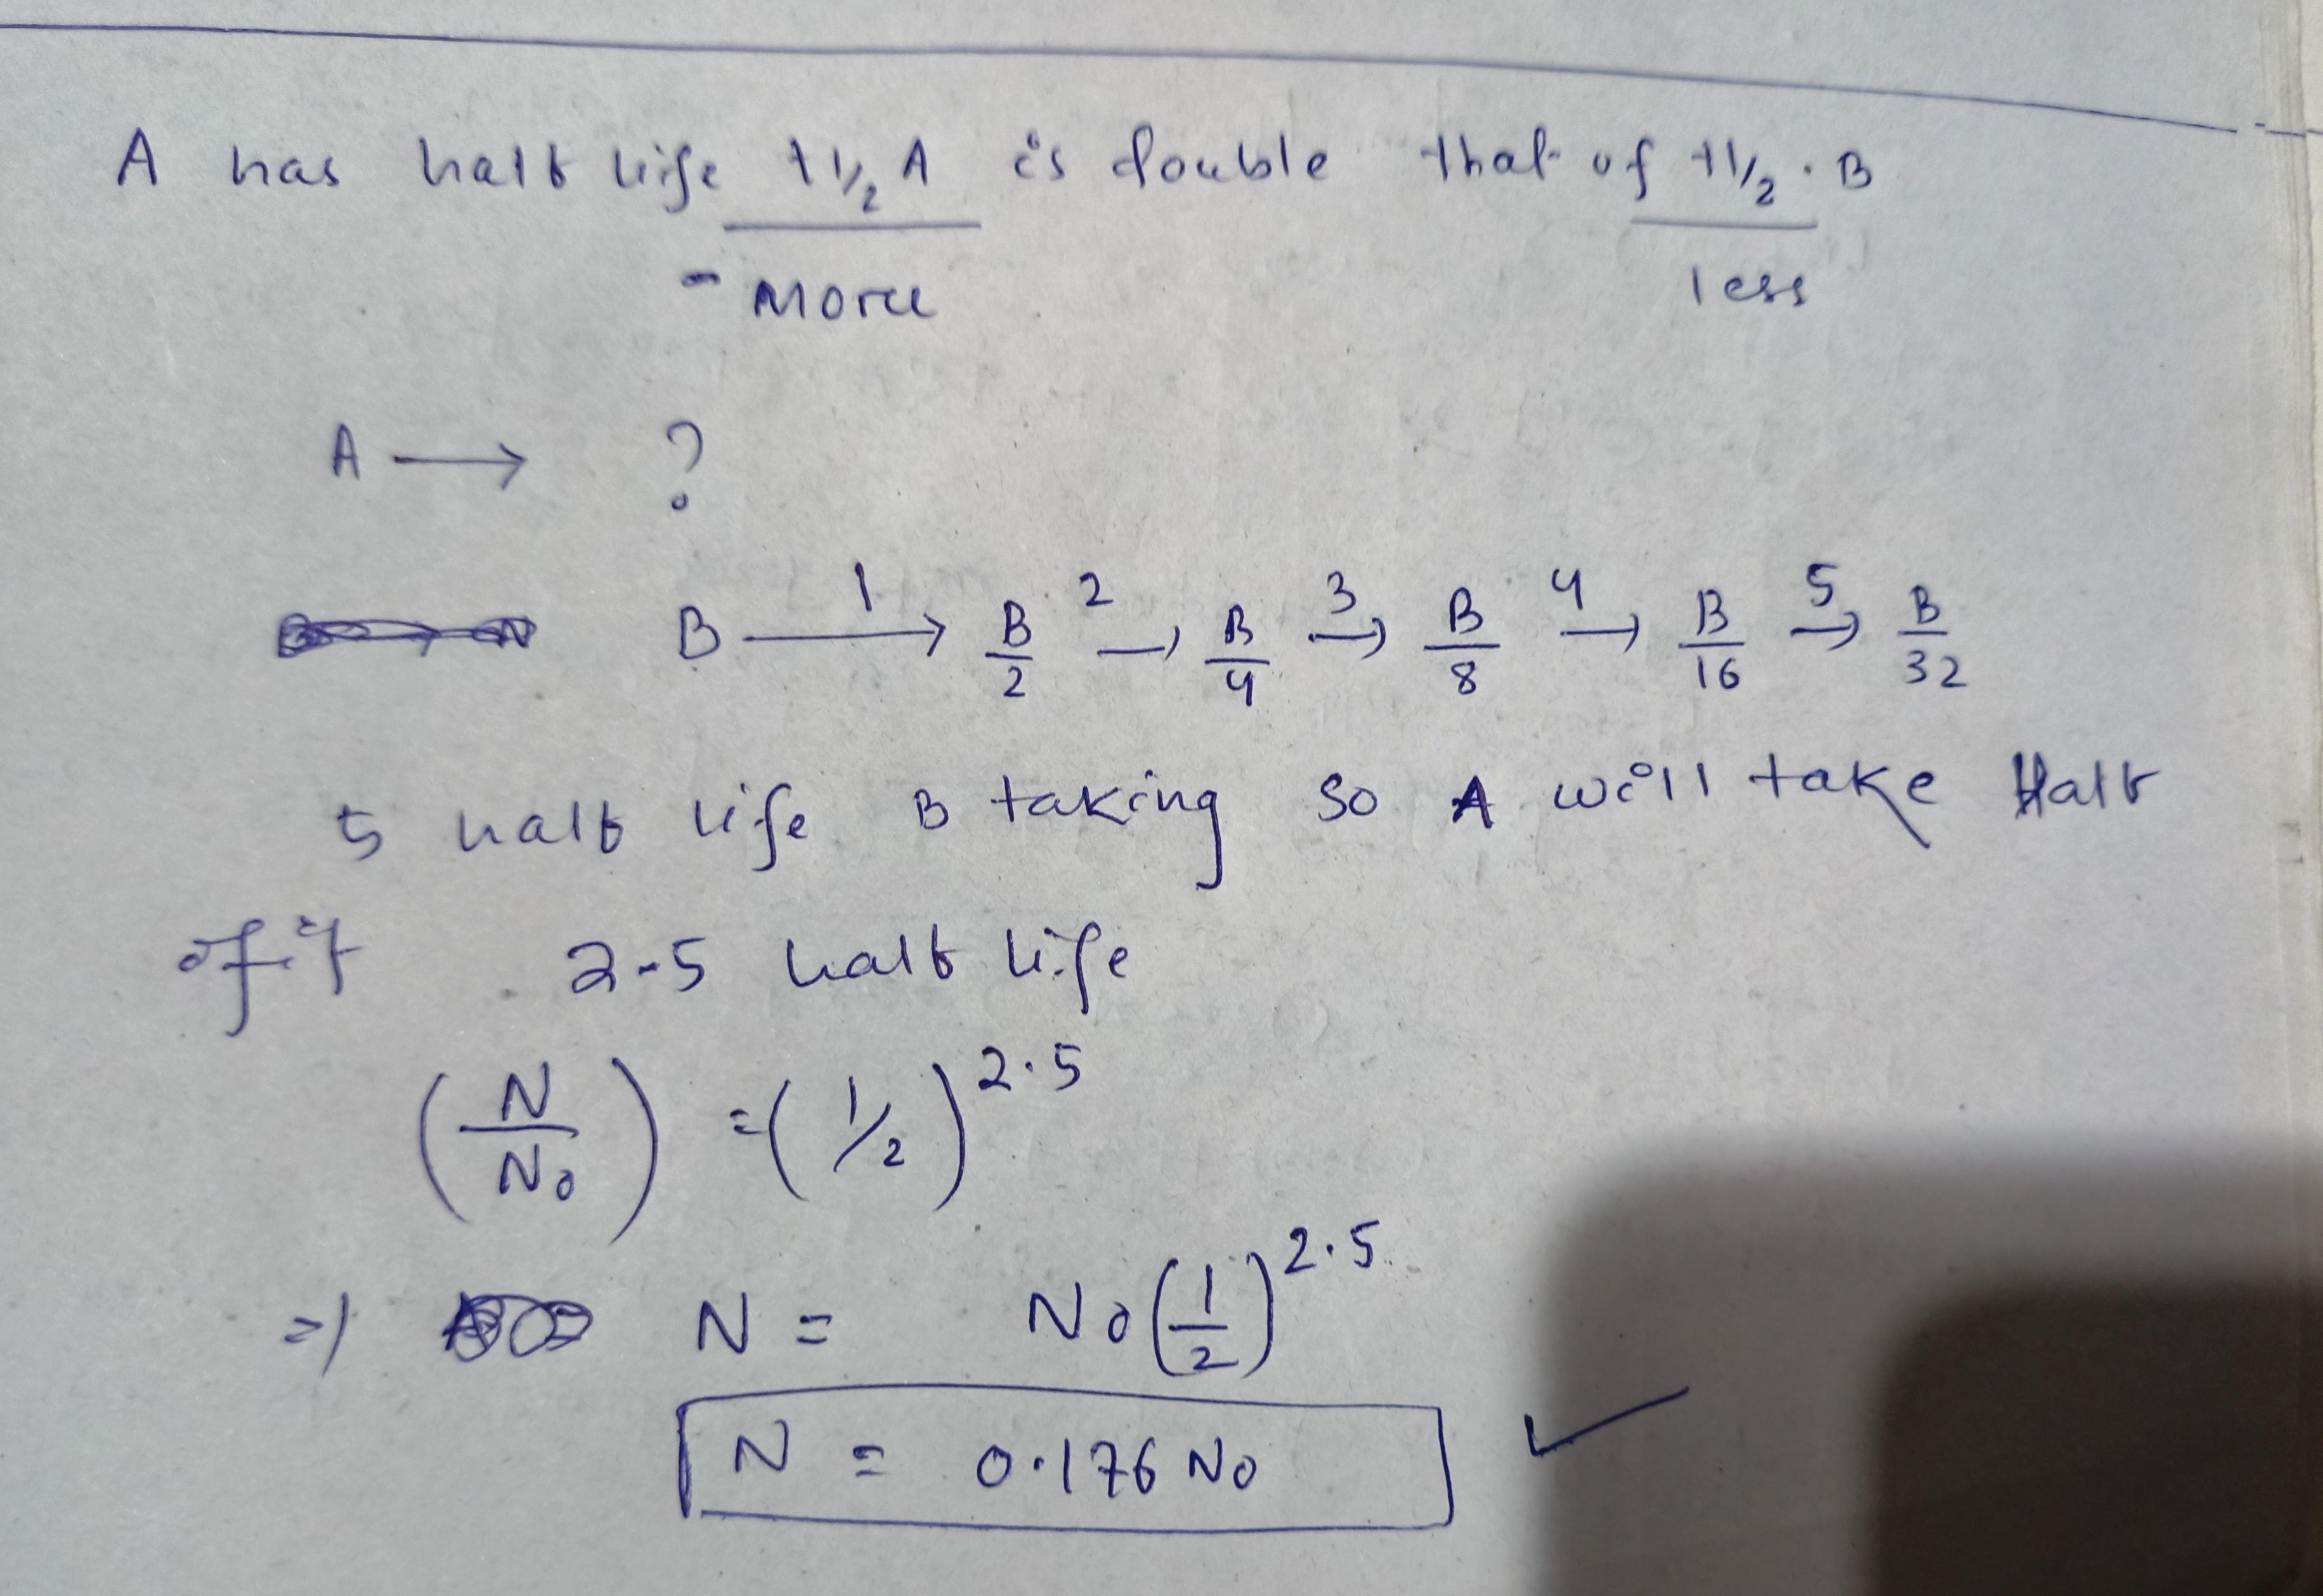 A has half life t1/2 A is double that of t1/2 . B
- More less
A → ?
B —1→ B/2 —2→ B/4 —3→ B/8 —4→ B/16 —5→ B/32
5 half life B taking so A will take Half
of it 2.5 half life
(N/N0) = (1/2)^2.5
=) N = N0(1/2)^2.5
N = 0.176 N0 ✓